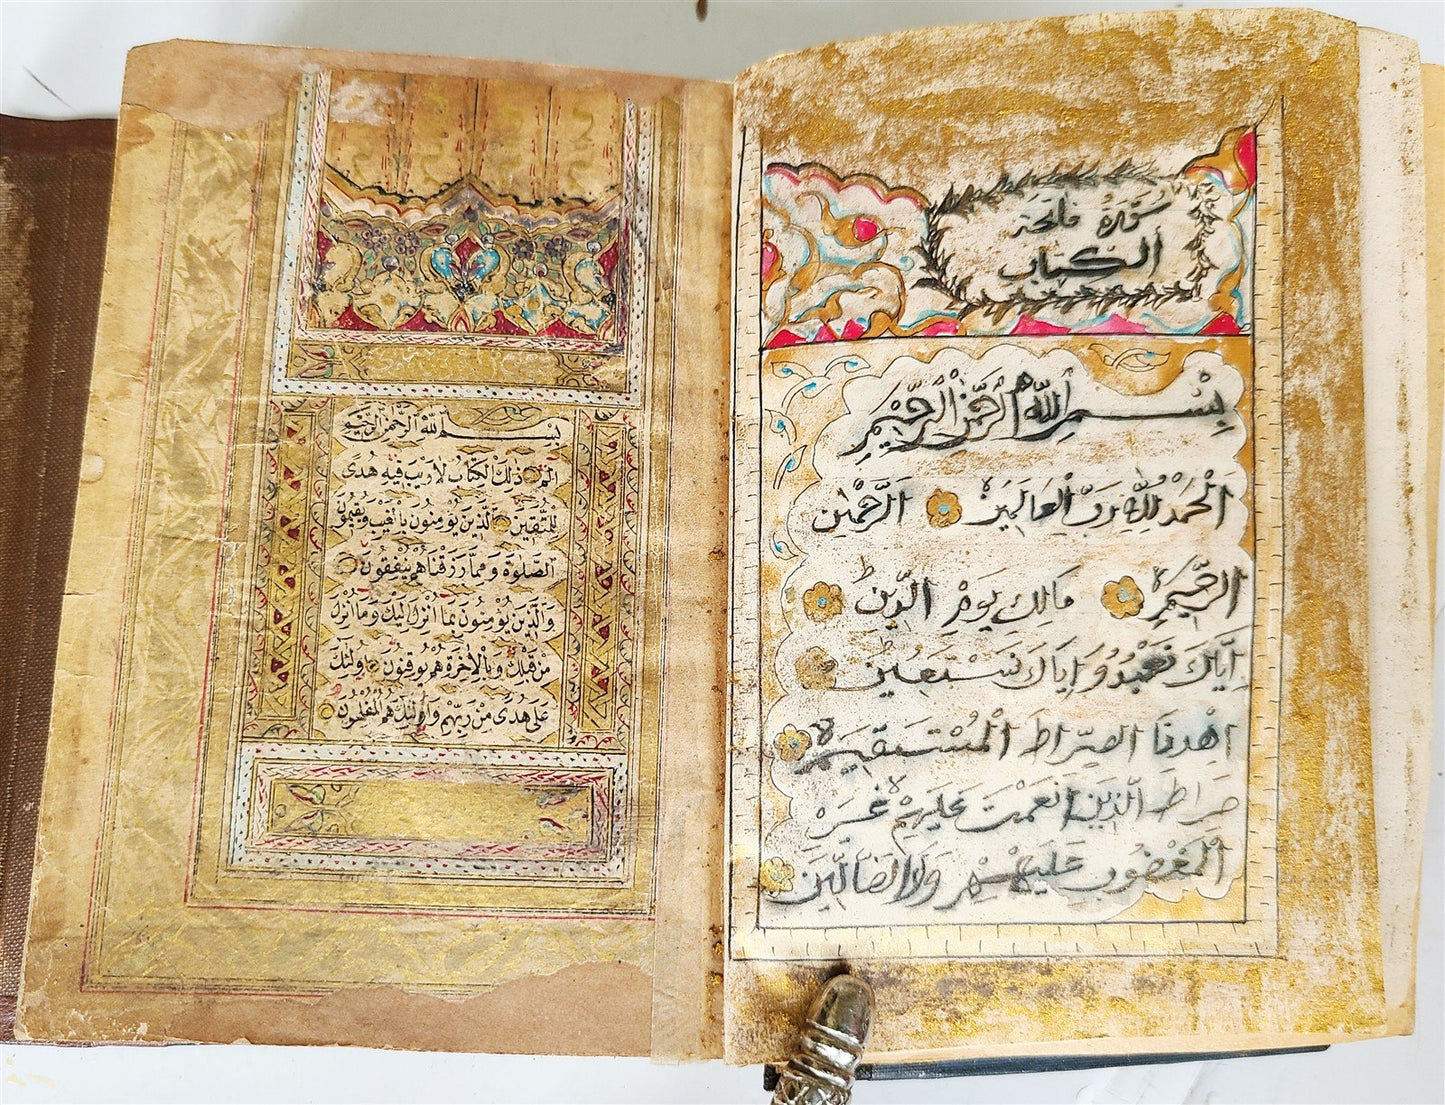 سورة فاتحة
الكتاب
بِسْمِ اللّٰهِ الرَّحْمٰنِ الرَّحِيْمِ
اَلْحَمْدُ لِلّٰهِ رَبِّ الْعَالَمِيْنَ الرَّحْمٰنِ
الرَّحِيْمِ مَالِكِ يَوْمِ الدِّيْنِ
اِيَّاكَ نَعْبُدُ وَاِيَّاكَ نَسْتَعِيْنُ
اِهْدِنَا الصِّرَاطَ الْمُسْتَقِيْمَ
صِرَاطَ الَّذِيْنَ اَنْعَمْتَ عَلَيْهِمْ غَيْرِ
الْمَغْضُوْبِ عَلَيْهِمْ وَلَا الضَّالِّيْنَ
بِسْمِ اللّٰهِ الرَّحْمٰنِ الرَّحِيْمِ
الٓمٓ ذٰلِكَ الْكِتَابُ لَا رَيْبَ فِيْهِ هُدًى
لِلْمُتَّقِيْنَ اَلَّذِيْنَ يُؤْمِنُوْنَ بِالْغَيْبِ وَيُقِيْمُوْنَ
الصَّلٰوةَ وَمِمَّا رَزَقْنَاهُمْ يُنْفِقُوْنَ
وَالَّذِيْنَ يُؤْمِنُوْنَ بِمَا اُنْزِلَ اِلَيْكَ وَمَا اُنْزِلَ
مِنْ قَبْلِكَ وَبِالْاٰخِرَةِ هُمْ يُوْقِنُوْنَ اُولٰئِكَ
عَلٰى هُدًى مِنْ رَبِّهِمْ وَاُولٰئِكَ هُمُ الْمُفْلِحُوْنَ